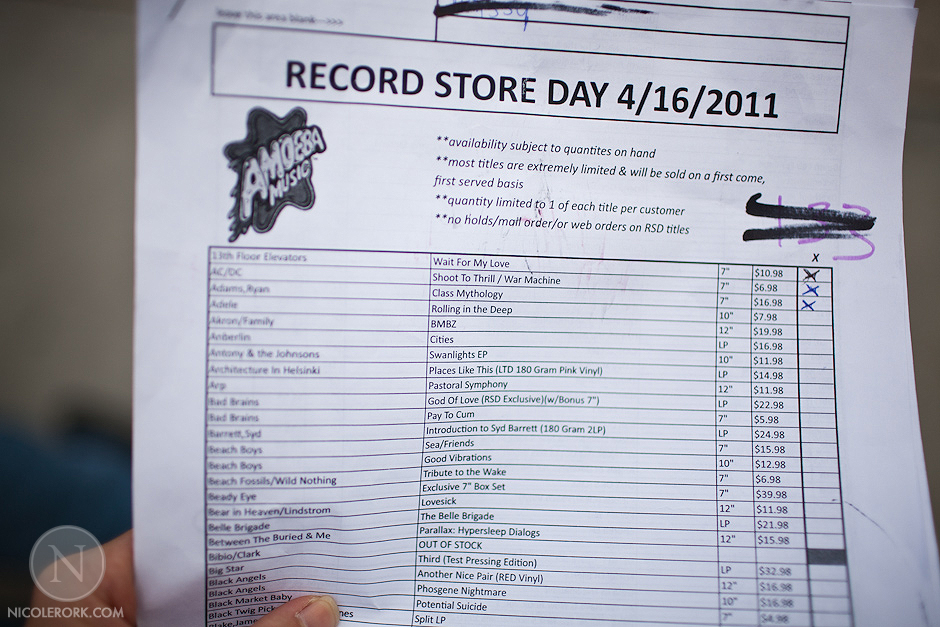 leave this area blank--->>>
RECORD STORE DAY 4/16/2011
AMOEBA
MUSIC
**availability subject to quantites on hand
**most titles are extremely limited & will be sold on a first come,
first served basis
**quantity limited to 1 of each title per customer
**no holds/mail order/or web orders on RSD titles
x
13th Floor Elevators Wait For My Love 7" $10.98 X
AC/DC Shoot To Thrill / War Machine 7" $6.98 X
Adams,Ryan Class Mythology 7" $16.98 X
Adele Rolling in the Deep 10" $7.98
Akron/Family BMBZ 12" $19.98
Anberlin Cities LP $16.98
Antony & the Johnsons Swanlights EP 10" $11.98
Architecture In Helsinki Places Like This (LTD 180 Gram Pink Vinyl) LP $14.98
Arp Pastoral Symphony 12" $11.98
Bad Brains God Of Love (RSD Exclusive)(w/Bonus 7") LP $22.98
Bad Brains Pay To Cum 7" $5.98
Barrett,Syd Introduction to Syd Barrett (180 Gram 2LP) LP $24.98
Beach Boys Sea/Friends 7" $15.98
Beach Boys Good Vibrations 10" $12.98
Beach Fossils/Wild Nothing Tribute to the Wake 7" $6.98
Beady Eye Exclusive 7" Box Set 7" $39.98
Bear in Heaven/Lindstrom Lovesick 12" $11.98
Belle Brigade The Belle Brigade LP $21.98
Between The Buried & Me Parallax: Hypersleep Dialogs 12" $15.98
Bibio/Clark OUT OF STOCK
Big Star Third (Test Pressing Edition) LP $32.98
Black Angels Another Nice Pair (RED Vinyl) 12" $16.98
Black Angels Phosgene Nightmare 10" $16.98
Black Market Baby Potential Suicide 7" $4.98
Black Twig Pick nes Split LP
Blake,Jame
N
NICOLERORK.COM